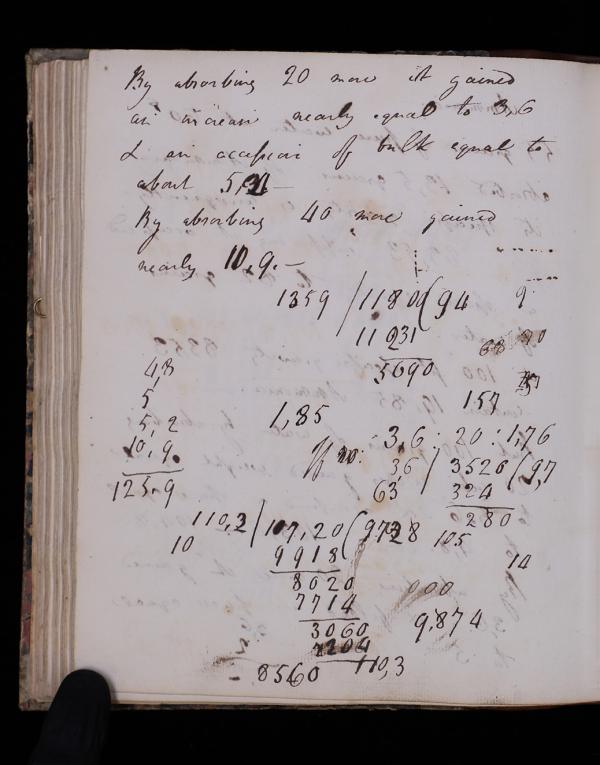 By absorbing 20 more it gained
an increase nearly equal to 3,6
& an accession of bulk equal to
about 5,
By absorbing 40 more gained
nearly 10,9.—
1359 / 11800 ( 94
11 231
5690
9
157
4,8
5,
5,2
10,9.
125,9
1,85
3,6 : 20 : 1,76
36 / 3520 ( 97,
63 324
280
110,2 / 107,20 ( 9728
10
9918
8020
7714
3060
2204
105
14
000
9.874
8560 110,3